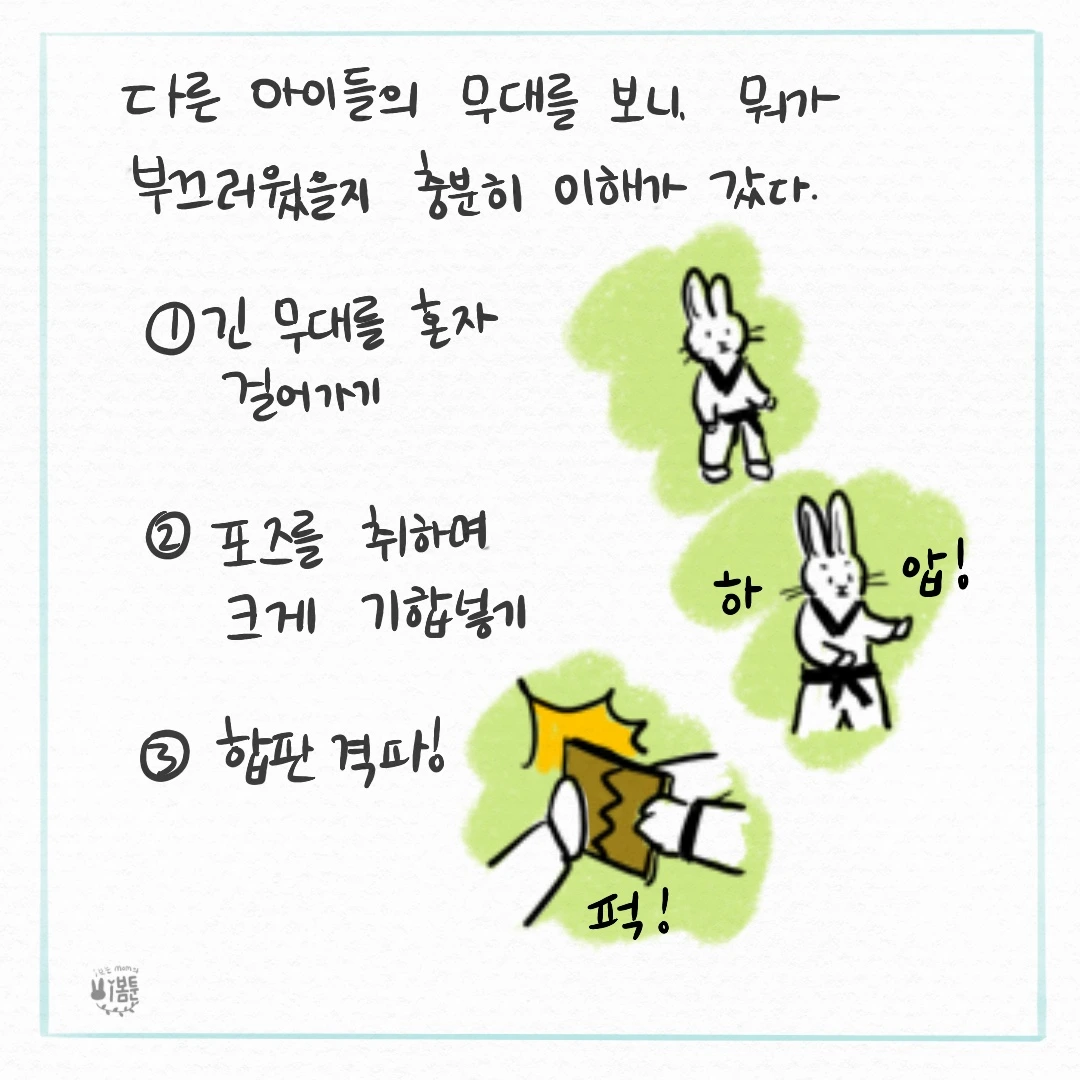 다른 아이들의 무대를 보니, 뭐가
부끄러웠을지 충분히 이해가 갔다.
① 긴 무대를 혼자
걸어가기
② 포즈를 취하며
크게 기합넣기
하 압!
③ 합판 격파!
퍽!
봄툰